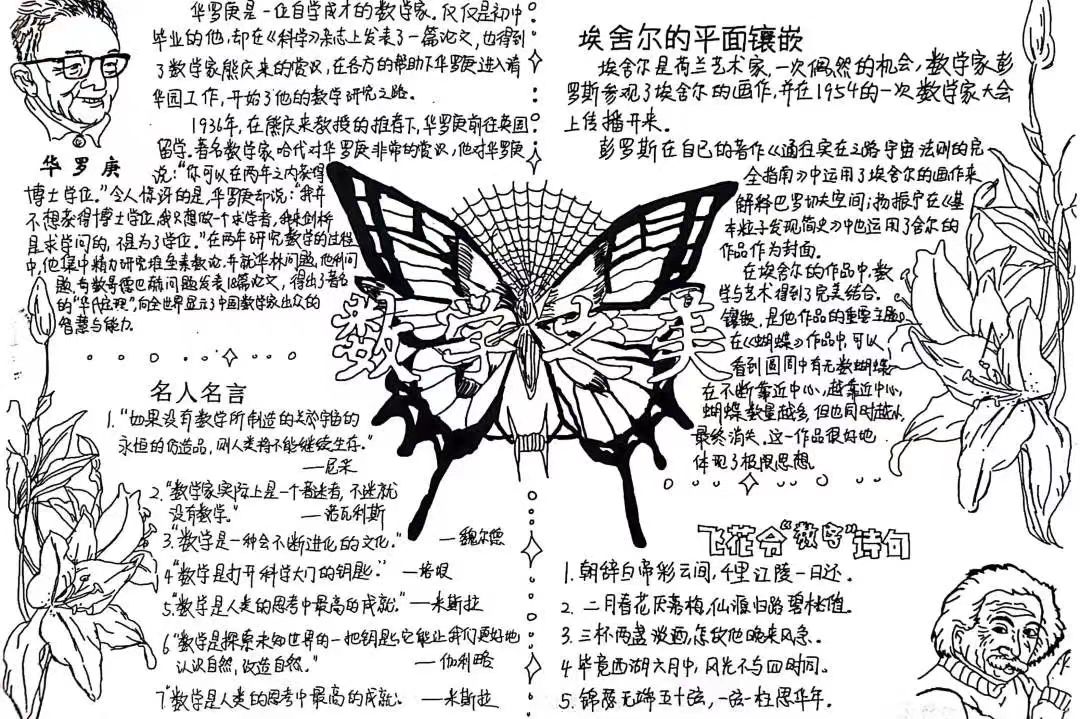 华罗庚是一位自学成才的数学家。仅仅是初中
毕业的他,却在《科学》杂志上发表了一篇论文,也得到
了数学家熊庆来的赏识,在各方的帮助下华罗庚进入清
华园工作,开始了他的数学研究之路。
1936年,在熊庆来教授的推荐下,华罗庚前往英国
留学。著名数学家哈代对华罗庚非常的赏识,他对华罗庚
说:“你可以在两年之内获得
博士学位。”令人惊讶的是,华罗庚却说:“我并
不想获得博士学位,我只想做一个求学者,我来剑桥
是求学问的,不是为了学位。”在两年研究数学的过程
中,他集中精力研究堆垒素数论,并就华林问题,他利问
题,奇数哥德巴赫问题发表18篇论文,得出了著名
的“华氏定理”,向全世界显示了中国数学家出众的
智慧与能力。
华罗庚
名人名言
1.“如果没有数学所制造的关于宇宙的
永恒的仿造品,则人类将不能继续生存。”
—尼采
2.“数学家实际上是一个着迷者,不迷就
没有数学。” —诺瓦利斯
3.“数学是一种会不断进化的文化。” —魏尔德
4“数学是打开科学大门的钥匙。” —培根
5.“数学是人类的思考中最高的成就。”—米斯拉
6“数学是探索未知世界的一把钥匙,它能让我们更好地
认识自然,改造自然。” —伽利略
7“数学是人类的思考中最高的成就。 —米斯拉
数学之美
埃舍尔的平面镶嵌
埃舍尔是荷兰艺术家,一次偶然的机会,数学家彭
罗斯参观了埃舍尔的画作,并在1954的一次数学家大会
上传播开来。
彭罗斯在自己的著作《通往实在之路宇宙法则的完
全指南》中运用了埃舍尔的画作来
解释巴罗切夫空间;杨振宁在《基
本粒子发现简史》中也运用了舍尔的
作品作为封面。
在埃舍尔的作品中,数
学与艺术得到了完美结合。
镶嵌,是他作品的重要主题。
在《蝴蝶》作品中,可以
看到圆周中有无数蝴蝶
在不断靠近中心,越靠近中心,
蝴蝶数量越多,但也同时越小,
最终消失。这一作品很好地
体现了极限思想。
飞花令“数字”诗句
1.朝辞白帝彩云间,千里江陵一日还。
2. 二月春花厌落梅,仙源归路碧桃催。
3. 三杯两盏淡酒,怎敌他晚来风急。
4 毕竟西湖六月中,风光不与四时同。
5. 锦瑟无端五十弦,一弦一柱思华年。